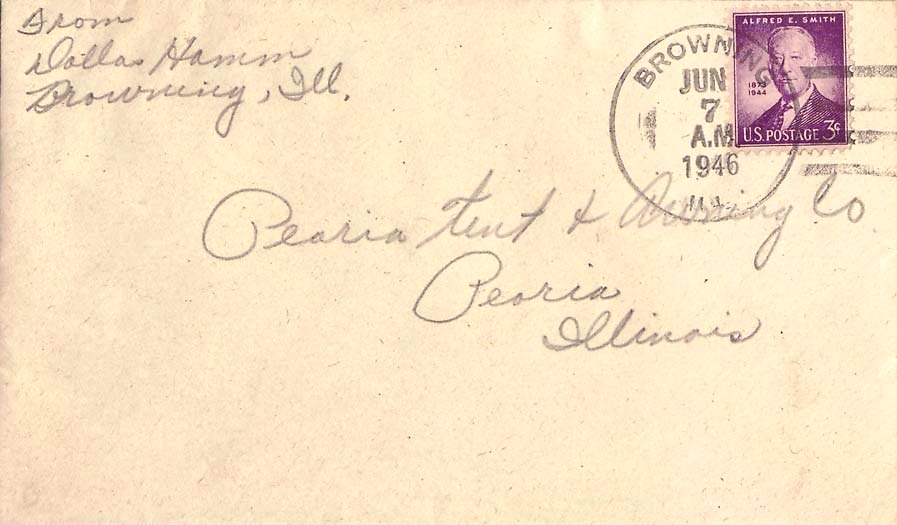 From
Dallas Hamm
Browning, Ill.
BROWNING
JUN
7
A.M
1946
ILL.
ALFRED E. SMITH
1873
1944
U.S. POSTAGE 3¢
Peoria Tent & Awning Co
Peoria
Illinois